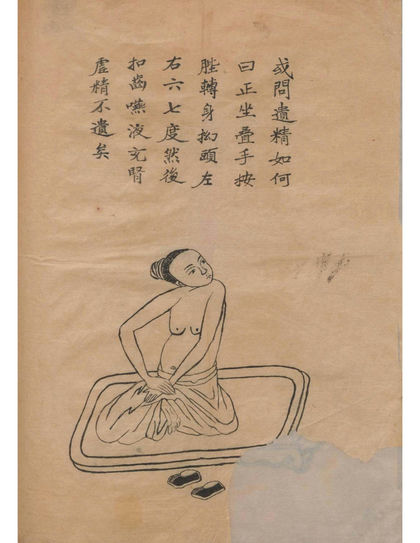 或問遺精如何
曰正坐疊手按
䏶轉身拗頭左
右六七度然後
扣齒嚥液充腎
虛精不遺矣